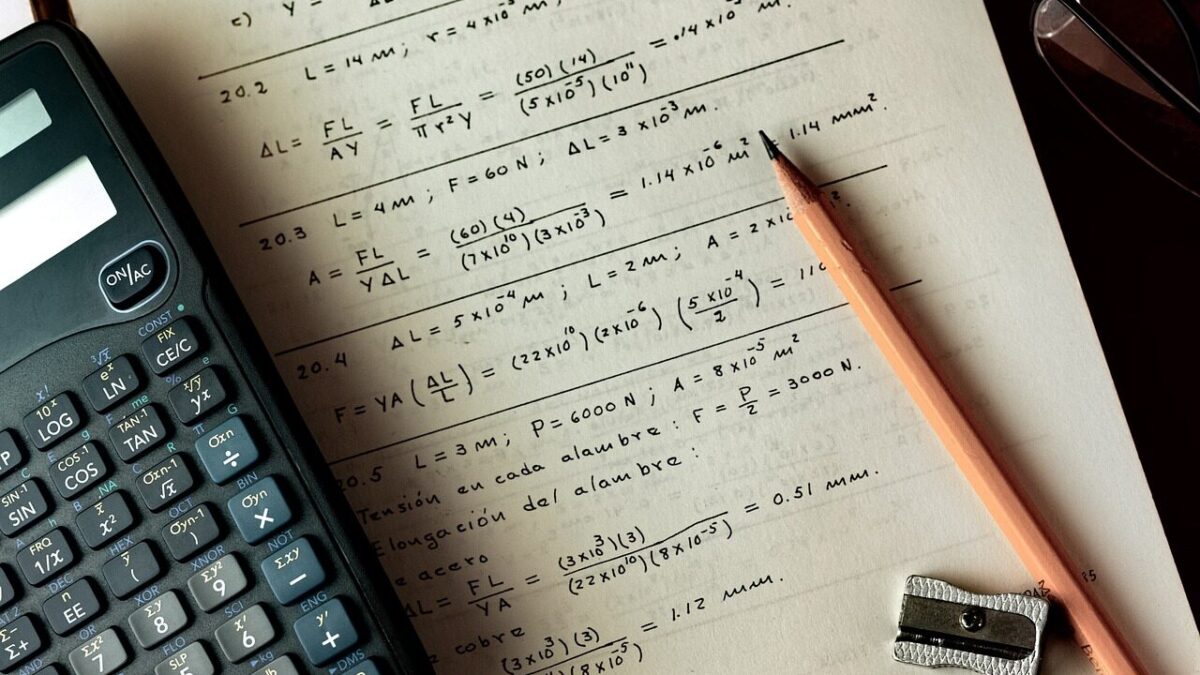 c) Y =
20.2 L = 14 m ; r = 4 x 10⁻³ m,
ΔL = FL/AY = FL/πr²Y = (50)(14)/(5x10⁻⁵)(10¹¹) = .14 x 10⁻³ m.
20.3 L = 4 m ; F = 60 N ; ΔL = 3 x 10⁻³ m.
A = FL/YΔL = (60)(4)/(7x10¹⁰)(3x10⁻³) = 1.14 x 10⁻⁶ m² = 1.14 mm².
20.4 ΔL = 5 x 10⁻⁴ m ; L = 2 m ; A = 2 x 10 ².
F = YA (ΔL/L) = (22x10¹⁰)(2x10⁻⁶)(5x10⁻⁴/2) = 110
20.5 L = 3 m ; P = 6000 N ; A = 8 x 10⁻⁵ m²
Tensión en cada alambre : F = P/2 = 3000 N.
Elongación del alambre :
e acero
ΔL = FL/YA = (3x10³)(3)/(22x10¹⁰)(8x10⁻⁵) = 0.51 mm.
cobre
(3x10³)(3)/(8x10⁻⁵) = 1.12 mm.
ON/AC
CONST
FIX
CE/C
³√x
eˣ
LN
%
ˣ√y
yx
e
x!
10ˣ
LOG
F
me
TAN-1
TAN
π
G
σxn
÷
E
COS-1
COS
C
R
σxn-1
√x
BIN
σyn
×
SIN-1
SIN
NA
x̄
x²
OCT
σyn-1
)
NOT
Σxy
−
FRQ
1/x
HEX
ȳ
(
XNOR
Σy²
9
ENG
y'
+
DEC
n
EE
XOR
Σy
8
SCI
x'
6
▶DMS
Σ-
Σ+
OR
Σx²
7
FLO
SLP
▶kg
AND